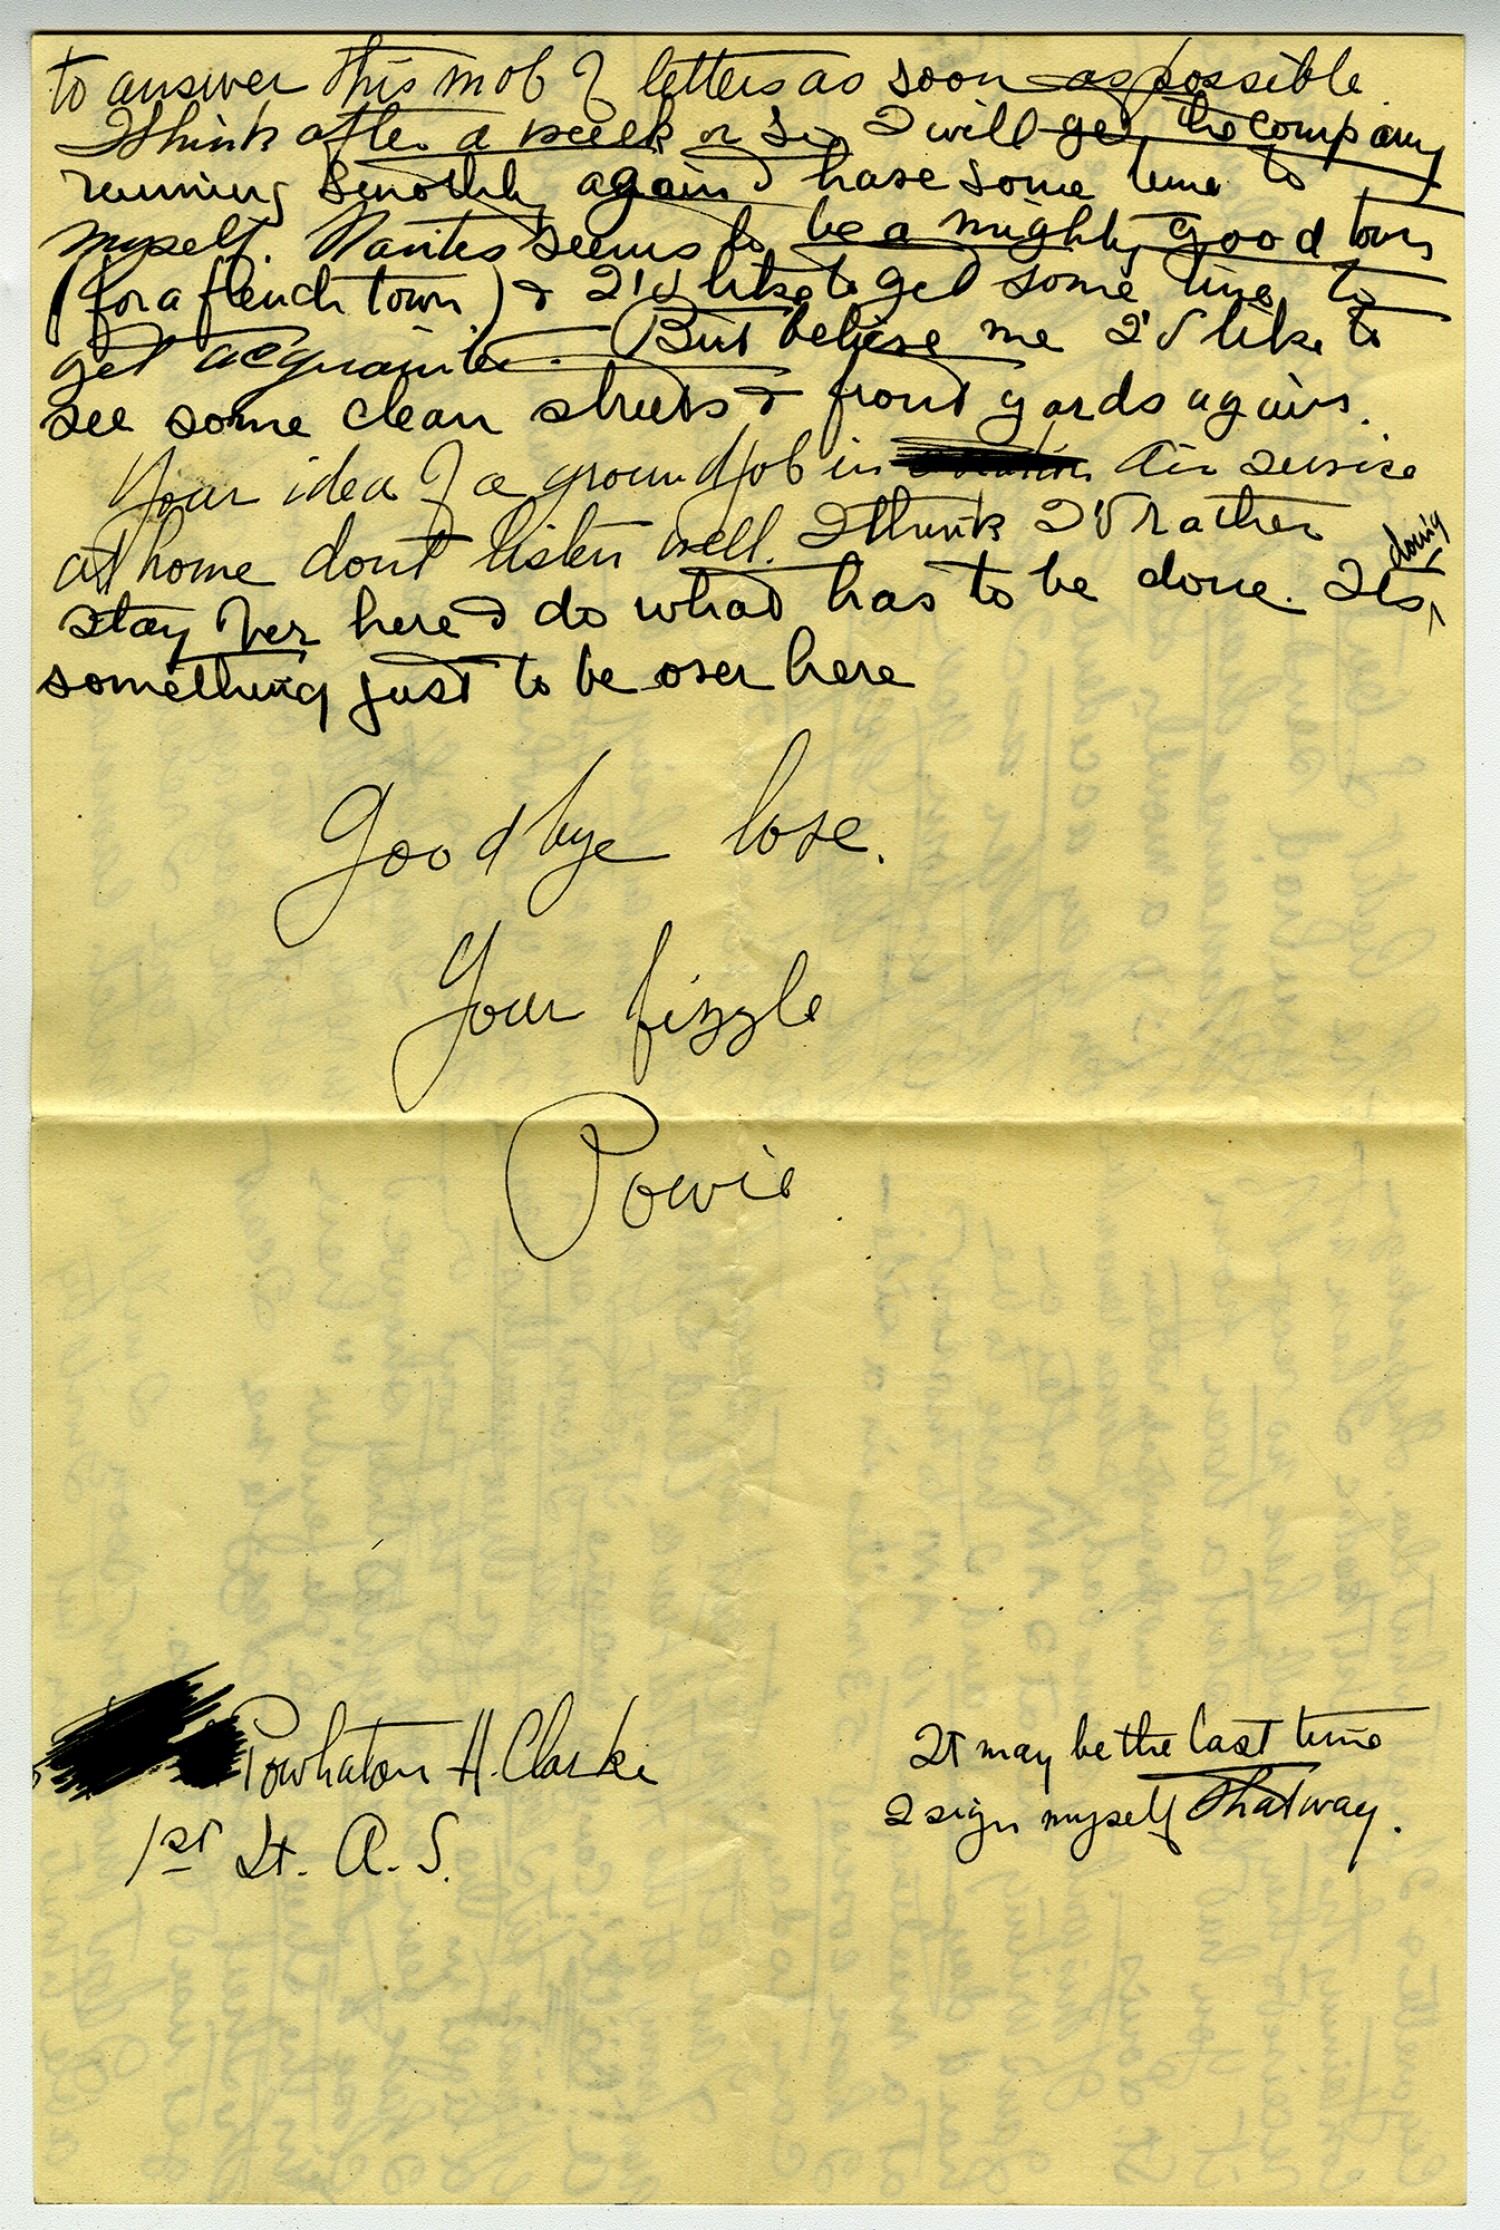 to answer this mob of letters as soon as possible.
I think after a week or so I will get the company
running smoothly again & have some time to
myself. Nantes seems to be a mighty good town
(for a french town) & I'd like to get some time to
get acquainted. But believe me I'd like to
see some clean streets & front yards again.
Your idea of a ground job in Air service
at home dont listen well. I think I'd rather
stay over here & do what has to be done. Its doing
something just to be over here
Goodbye love.
Your fizzle
Powie
Powhatan H. Clarke
1st Lt. A. S.
It may be the last time
I sign myself that way.